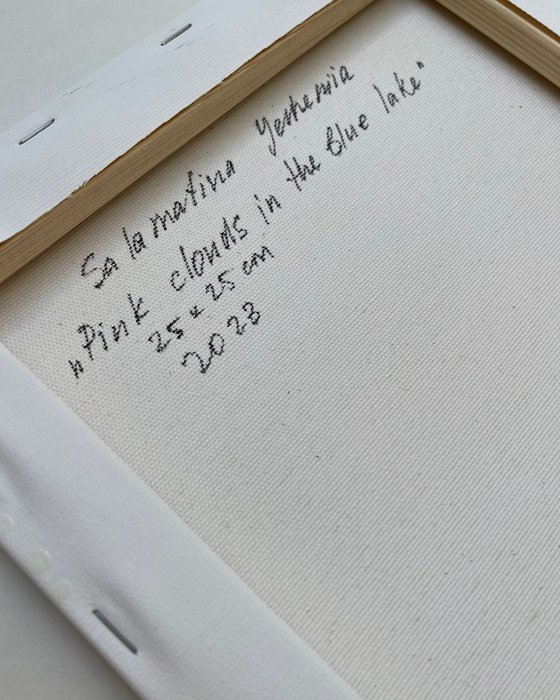 Salamatina Yevheniia
„Pink clouds in the Blue lake"
25 x 25 cm
2023